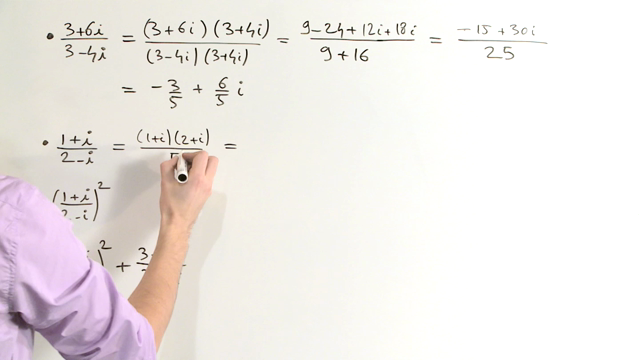 • (3+6i)/(3-4i) = (3+6i)(3+4i)/(3-4i)(3+4i) = (9-24+12i+18i)/(9+16) = (-15+30i)/25
= -3/5 + 6/5 i
• (1+i)/(2-i) = (1+i)(2+i)/5 =
((1+i)/(2-i))²
)² + 3